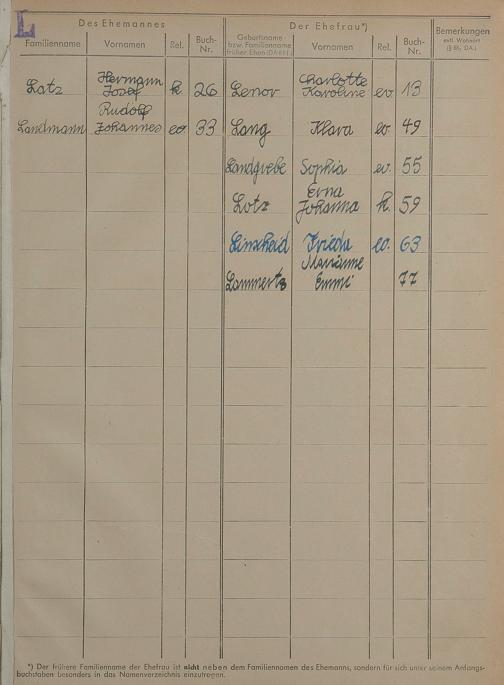 L
Des Ehemannes Der Ehefrau*) Bemerkungen
Familienname Vornamen Rel. Buch-Nr. Geburtsname bzw. Familienname früher. Ehen Vornamen Rel. Buch-Nr. evtl. Wohnort
Hermann Charlotte
Latz Josef k. 26 Lenov Karoline ev 13
Rudolf
Landmann Johannes ev. 33 Lang Klara ev. 49
Landgrebe Sophia ev. 55
Erna
Lotz Johanna k. 59
Linscheid Frieda ev. 63
Marianne
Lammertz Emmi 77
*) Der frühere Familienname der Ehefrau ist nicht neben dem Familiennamen des Ehemanns, sondern für sich unter seinem Anfangs-
buchstaben besonders in das Namenverzeichnis einzutragen.